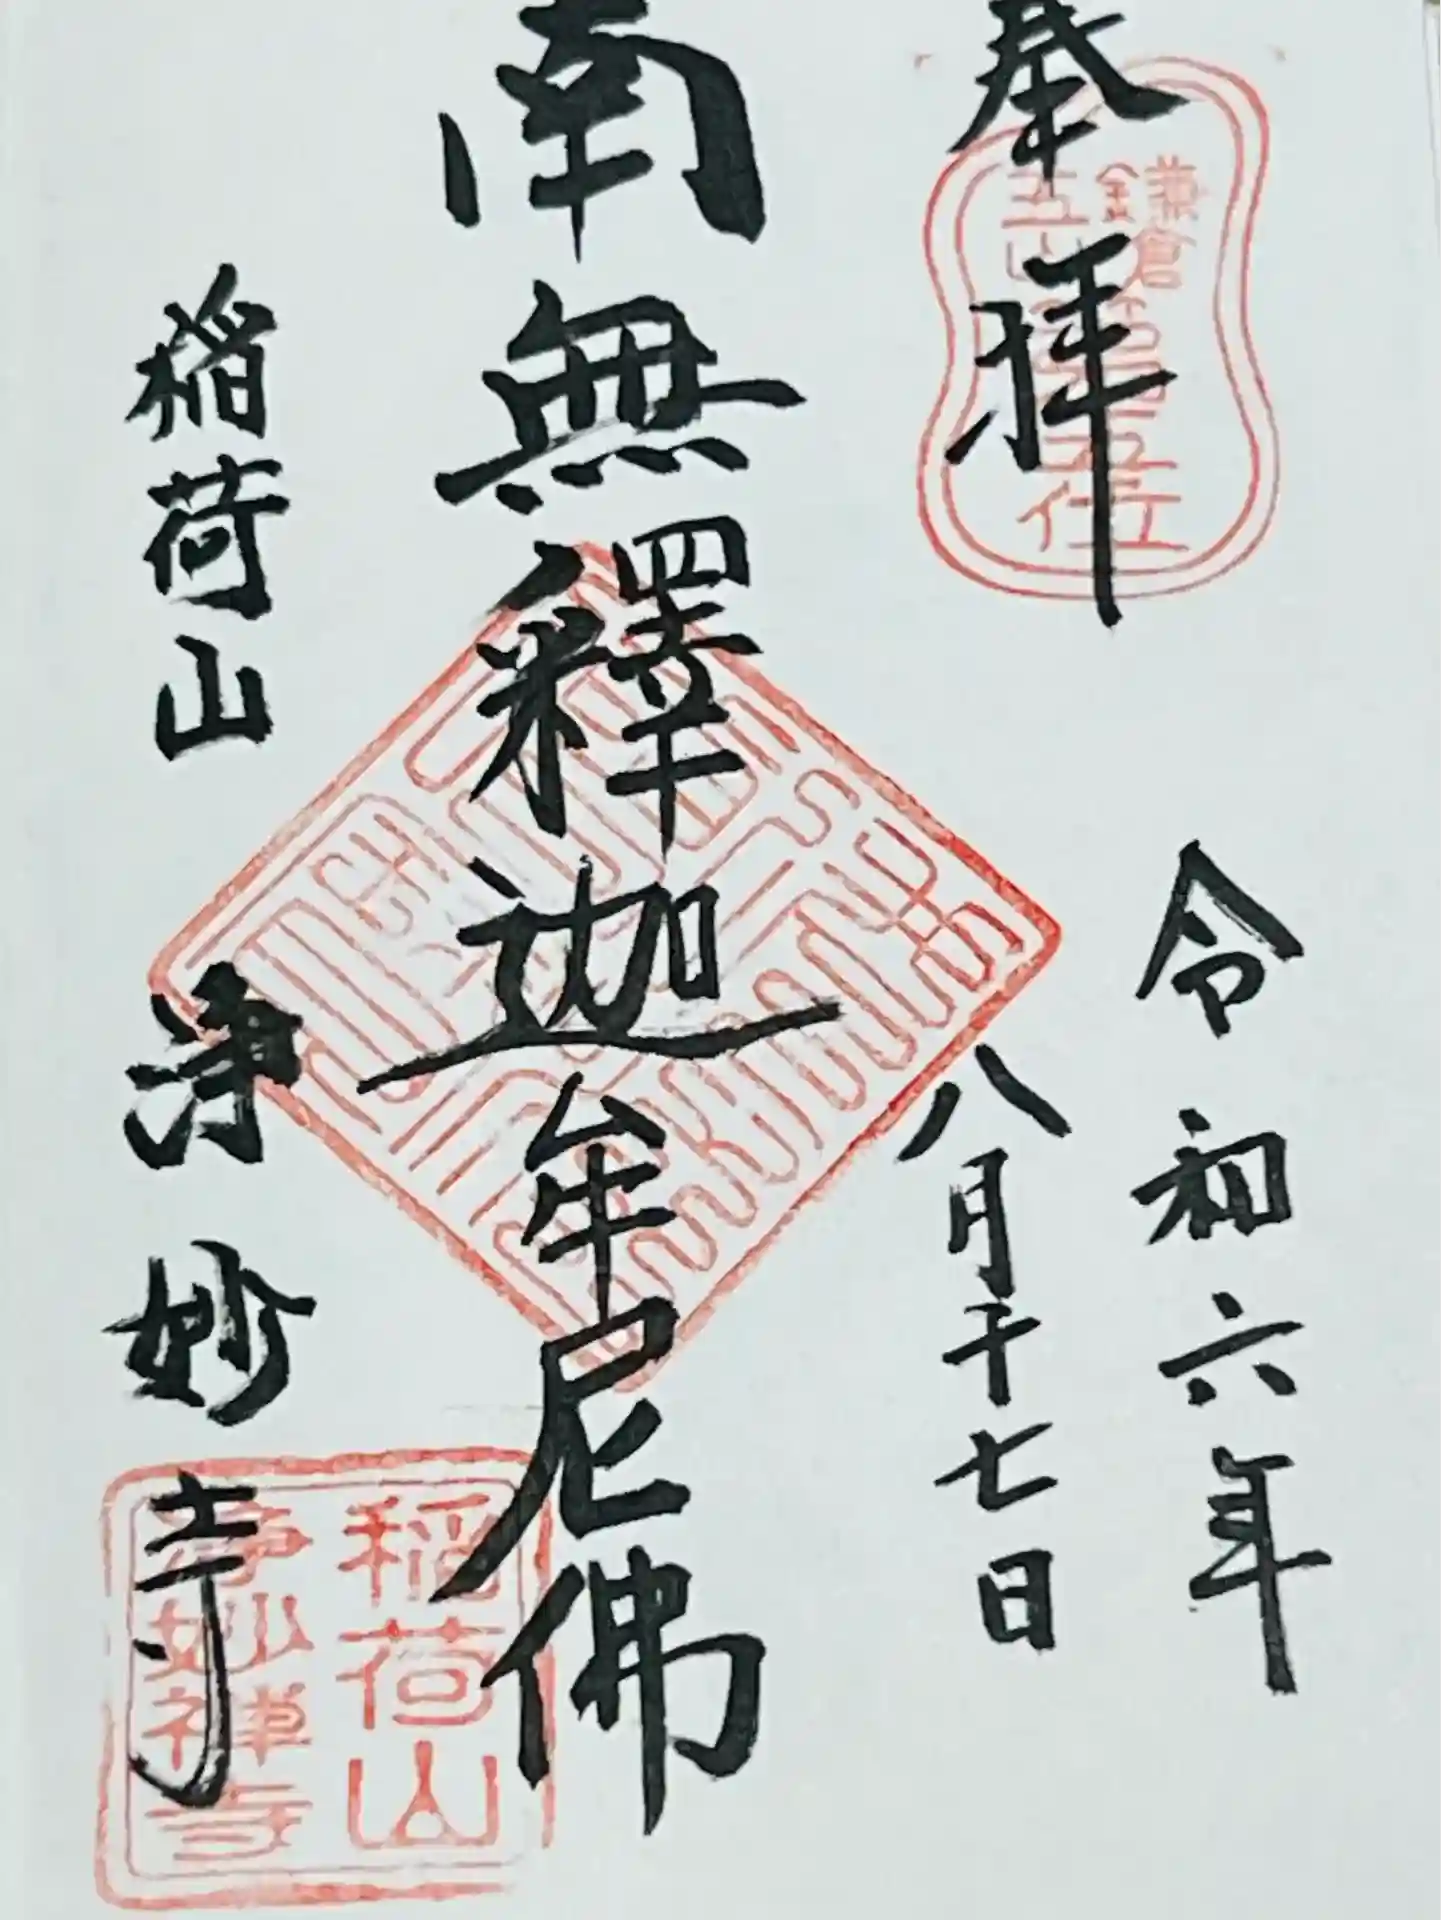 奉拝
鎌倉
五山第五位
令和六年
八月十七日
南無釋迦牟尼佛
稲荷山
浄妙寺
稲荷山
浄妙禅寺